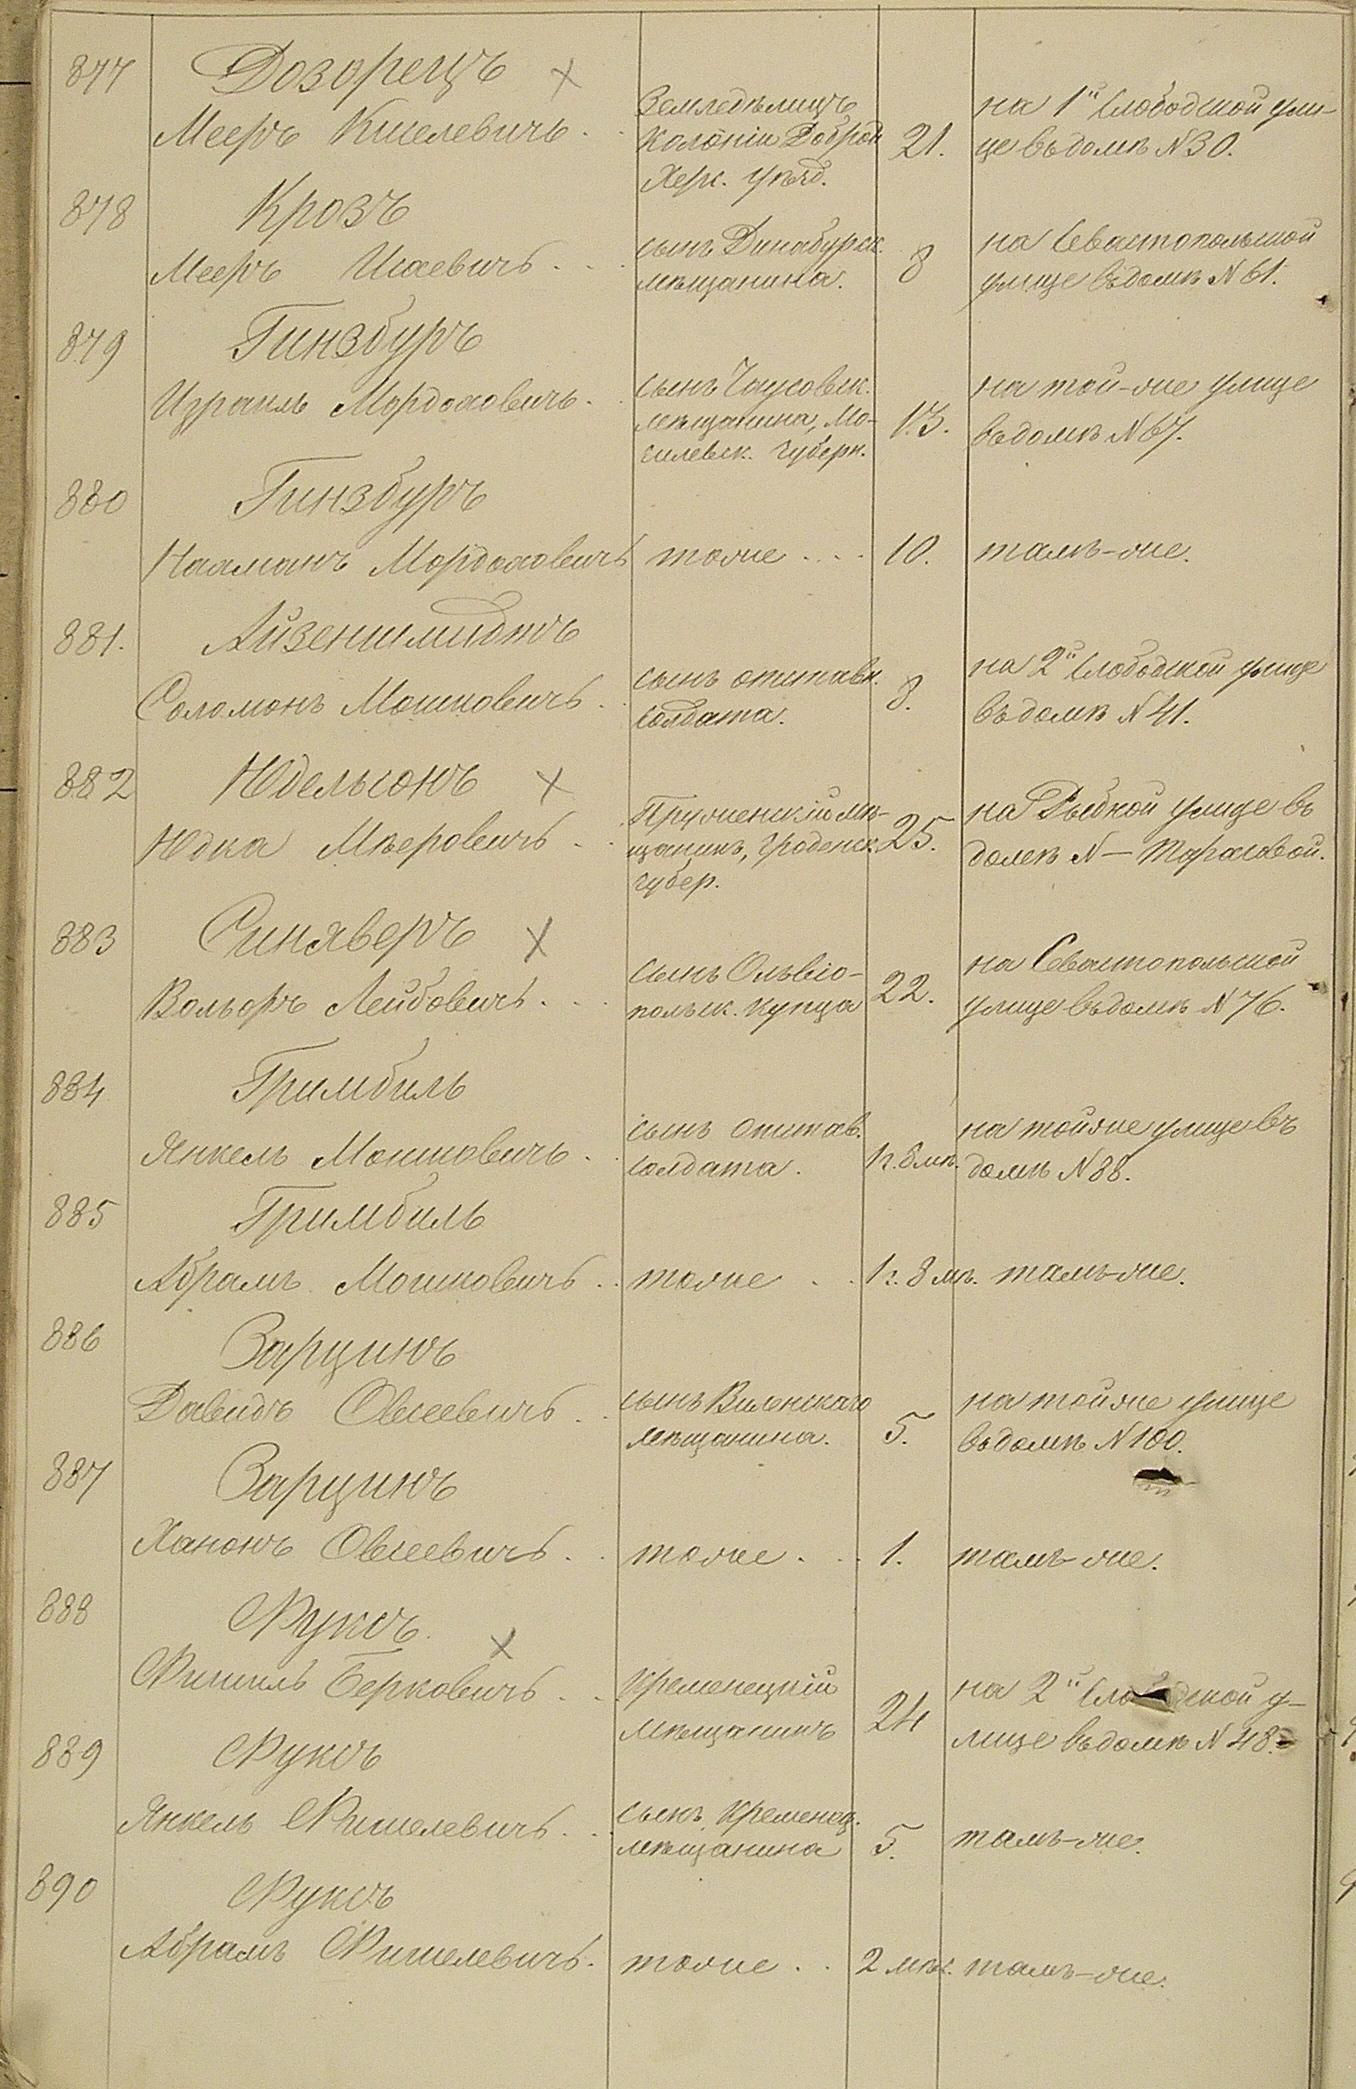 877 Дозорецъ ×
Мееръ Киселевичъ. Земледѣлецъ
колоніи Доброй
Херс. уѣзд. 21. на 1й Слободской ули-
це въ домѣ N 30.
878 Крозъ
Мееръ Исаевичъ . . . сынъ Динабургск.
мѣщанина. 8 на Севастопольской
улице въ домѣ N 61.
879 Гинзбургъ
Израиль Мордоховичъ. сынъ Чаусовск.
мѣщанина, Мо-
гилевск. губерн. 13. на той-же улице
въ домѣ N 67.
880 Гинзбургъ
Нахманъ Мордоховичъ тоже . . . 10. тамъ-же.
881. Айзеншмидтъ
Соломонъ Мошковичъ . . сынъ отставн.
солдата. 8. на 2й Слободской улице
въ домѣ N 41.
882 Юдельсонъ ×
Юдка Мѣеровичъ . . Пруженскій мѣ-
щанинъ, Гроденск.
губер. 25. на Рыбной улице въ
домѣ N — Тарасовой.
883 Синяверъ ×
Вольфъ Лейбовичъ . . . сынъ Ольвіо-
польск. купца 22. на Севастопольской
улице въ домѣ N 76.
884 Гримбиль
Янкель Мошковичъ . сынъ отстав.
солдата. 1 г. 8 мѣ. на тойже улице въ
домѣ N 88.
885 Гримбиль
Абрамъ Мошковичъ . . тоже . . 1 г. 8 мѣ. тамъ-же.
886 Зарцинъ
Давидъ Овсеевичъ . . сынъ Виленскаго
мѣщанина. 5. на тойже улице
въ домѣ N 100.
887 Зарцинъ
Ханонъ Овсеевичъ . . тоже . . . 1. тамъ-же.
888 Фуксъ ×
Фишиль Берковичъ . . Кременецкій
мѣщанинъ 24 на 2й Слободской у-
лице въ домѣ N 48.
889 Фуксъ
Янкель Фишелевичъ . . сынъ Кременец.
мѣщанина 5. тамъ-же.
890 Фуксъ
Абрамъ Фишелевичъ. тоже . . 2 мѣс. тамъ-же.